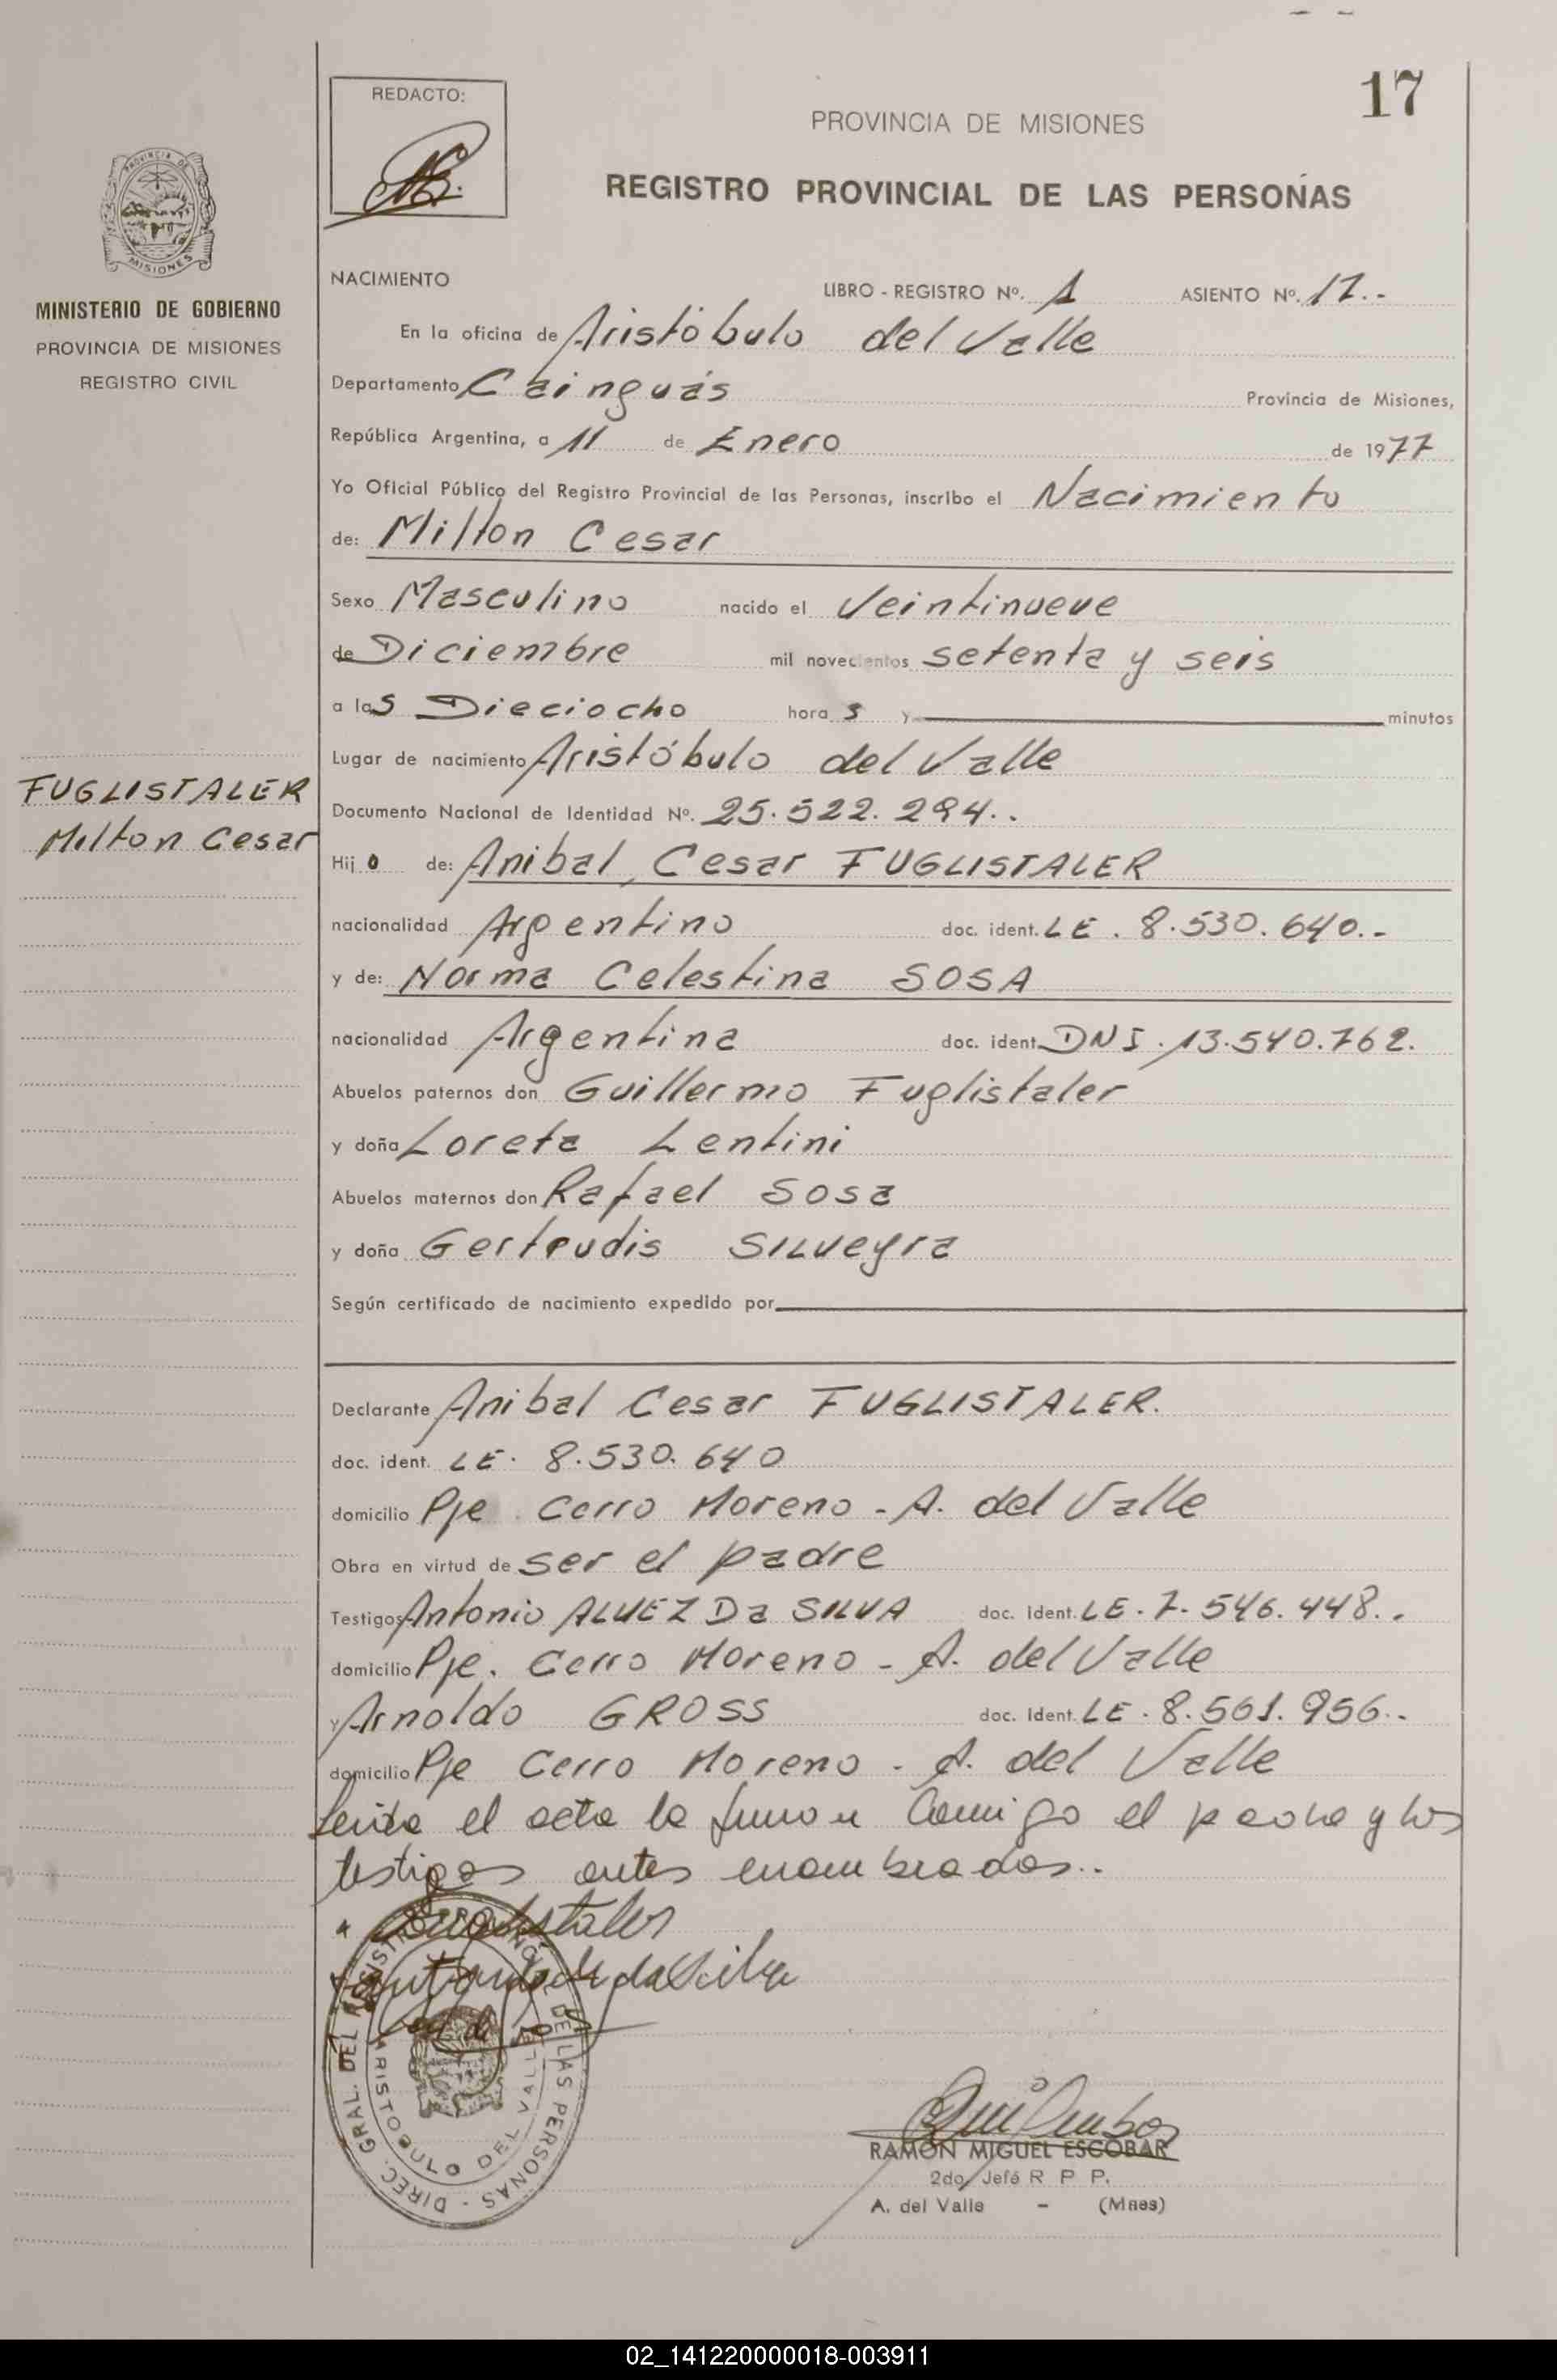 17
REDACTO:
PROVINCIA DE MISIONES
REGISTRO PROVINCIAL DE LAS PERSONAS
PROVINCIA DE
MISIONES
MINISTERIO DE GOBIERNO
PROVINCIA DE MISIONES
REGISTRO CIVIL
NACIMIENTO LIBRO - REGISTRO Nº. 1 ASIENTO Nº. 17.-
En la oficina de Aristóbulo del Valle
Departamento Cainguás Provincia de Misiones,
República Argentina, a 11 de Enero de 1977
Yo Oficial Público del Registro Provincial de las Personas, inscribo el Nacimiento
de: Milton Cesar
Sexo Masculino nacido el Veintinueve
de Diciembre mil novecientos setenta y seis
a las Dieciocho horas y minutos
Lugar de nacimiento Aristóbulo del Valle
FUGLISTALER
Milton Cesar
Documento Nacional de Identidad Nº. 25.522.294..
Hijo de: Anibal Cesar FUGLISTALER
nacionalidad Argentino doc. ident. LE. 8.530.640.-
y de: Norma Celestina SOSA
nacionalidad Argentina doc. ident. DNI. 13.540.762.
Abuelos paternos don Guillermo Fuglistaler
y doña Loreta Lentini
Abuelos maternos don Rafael Sosa
y doña Gertrudis SILVEyra
Según certificado de nacimiento expedido por
Declarante Anibal Cesar FUGLISTALER.
doc. ident. LE. 8.530.640
domicilio Pje Cerro Moreno - A. del Valle
Obra en virtud de ser el padre
Testigos Antonio ALVEZ Da SILVA doc. Ident. LE. 7.546.448..
domicilio Pje. Cerro Moreno - A. del Valle
y Arnoldo GROSS doc. Ident. LE. 8.561.956..
domicilio Pje Cerro Moreno - A. del Valle
Leida el acta la firman Comigo el padre y los
testigos antes enombrados..
DIREC. GRAL. DEL REGISTRO PROVINCIAL DE LAS PERSONAS -
ARISTOBULO DEL VALLE
RAMON MIGUEL ESCOBAR
2do. Jefe R P P.
A. del Valle - (Mnes)
02_141220000018-003911